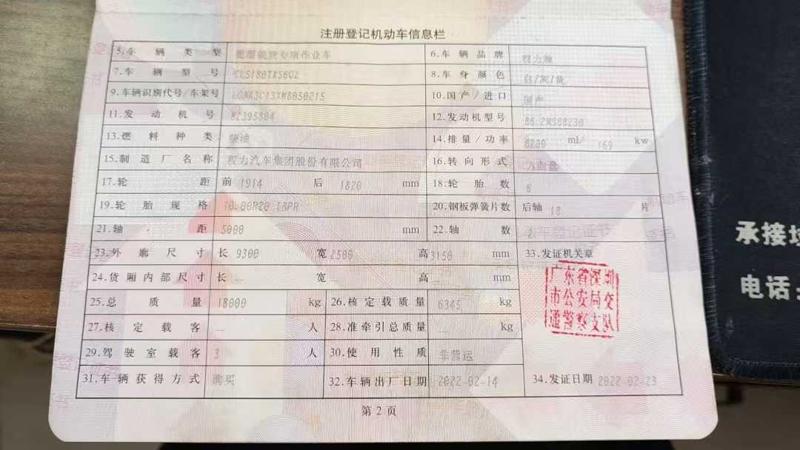 注册登记机动车信息栏
5.车辆类型 专项作业车 6.车辆品牌 程力牌
7.车辆型号 8.车身颜色 白/灰/黄
9.车辆识别代号/车架号 10.国产/进口 国产
11.发动机号 12.发动机型号
13.燃料种类 柴油 14.排量/功率 ml/ 169 kw
15.制造厂名称 程力汽车集团股份有限公司 16.转向形式 方向盘
17.轮距 前 1914 后 1820 mm 18.轮胎数 6
19.轮胎规格 10.00R20 18PR 20.钢板弹簧片数 后轴 10 片
21.轴距 5000 mm 22.轴数
23.外廓尺寸 长 9300 宽 2500 高 3150 mm 33.发证机关章
24.货厢内部尺寸 长 -- 宽 -- 高 -- mm
广东省深圳
市公安局交
通警察支队
25.总质量 18000 kg 26.核定载质量 6345 kg
27.核定载客 -- 人 28.准牵引总质量 -- kg
29.驾驶室载客 3 人 30.使用性质 非营运
31.车辆获得方式 购买 32.车辆出厂日期 2022-02-14 34.发证日期 2022-02-23
第2页
承接
电话: